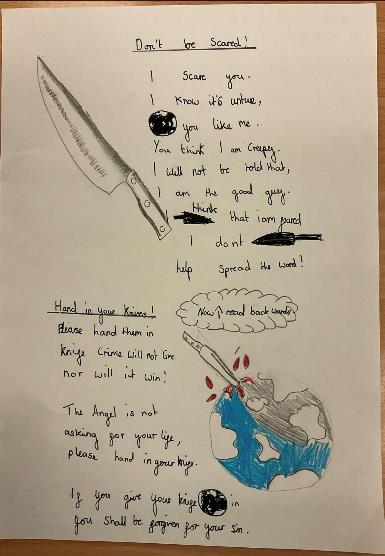 Don't be Scared!
I Scare you.
I know it's untrue,
you like me.
You think I am creepy.
I will not be told that,
I am the good guy.
I think that i am scared
I dont
help spread the word!
Now ↑ read backwards.
Hand in your Knives!
Please hand them in
Knife Crime will not live
nor will it win!
The Angel is not
asking for your life,
please hand in your knife.
If you give your knife in
You shall be forgiven for your Sin.